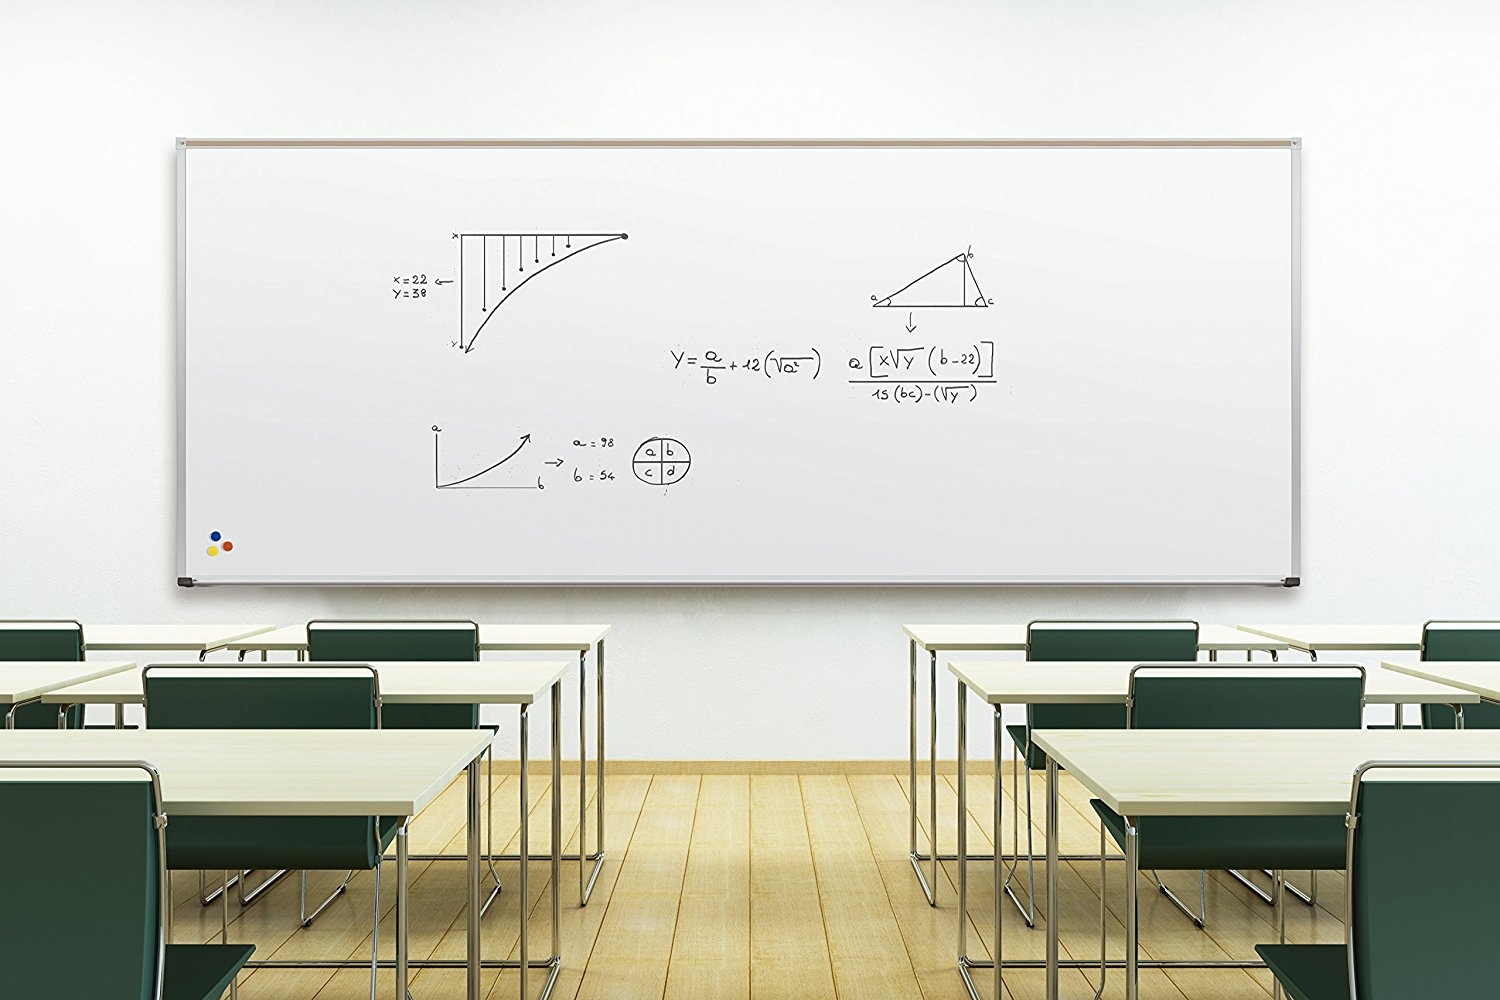 x
x = 22
y = 38
y
b
a
c
y = a/b + 12 (√a²)
a [x√y (b - 22)] / 15 (bc) - (√y)
a
b
a = 98
b = 54
a b
c d